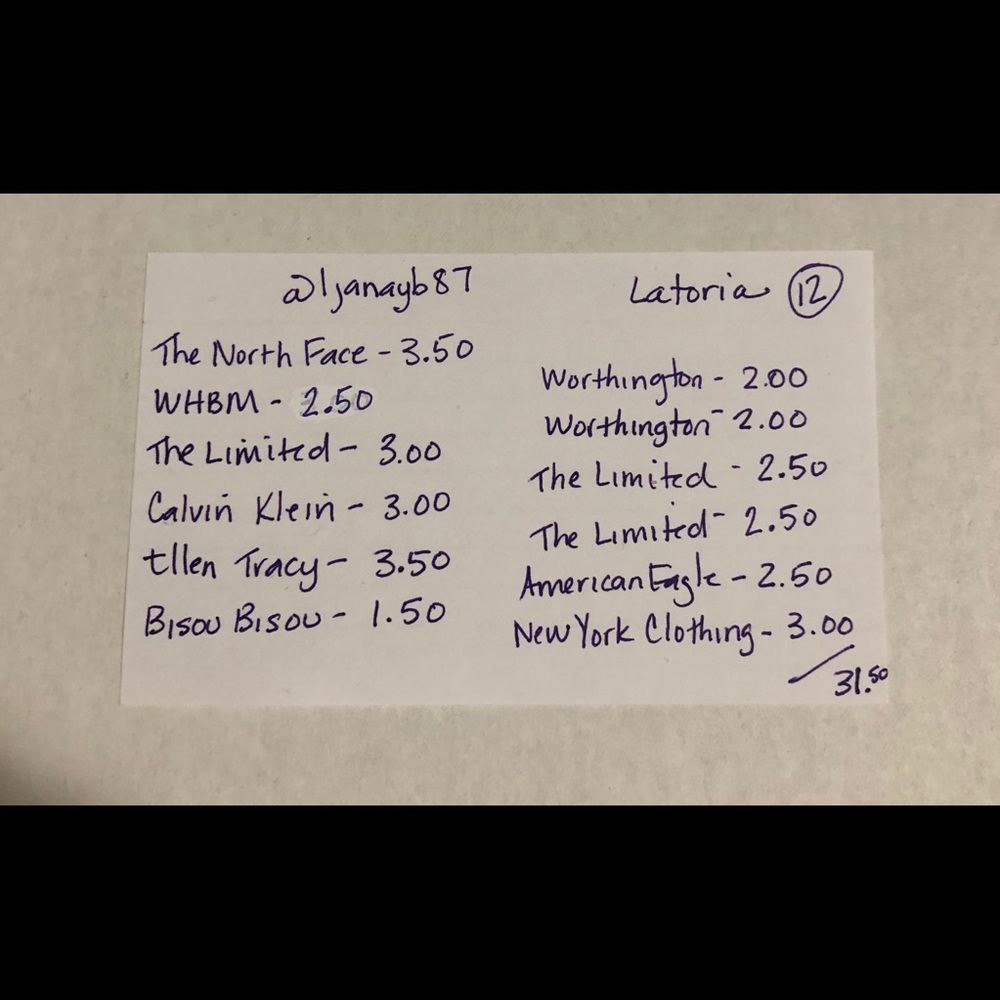 @ljanayb87
Latoria 12
The North Face - 3.50
WHBM - 2.50
The Limited - 3.00
Calvin Klein - 3.00
Ellen Tracy - 3.50
Bisou Bisou - 1.50
Worthington - 2.00
Worthington - 2.00
The Limited - 2.50
The Limited - 2.50
American Eagle - 2.50
New York Clothing - 3.00
31.50